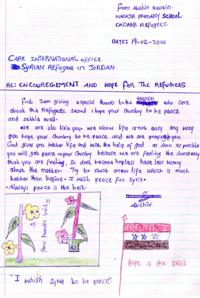 From: Abshir Hussein
PRIMARY SCHOOL
DADAAB REFUGEES
DATE: 19-02-2014
CARE INTERNATIONAL OFFICE
SYRIAN REFUGEES IN JORDAN
RE: ENCOURAGEMENT AND HOPE FOR THE REFUGEES
First I am giving a special thanks to the who care
about the Refugees. Second I hope your Country to be peace
and settle well.
we are also like you we know life
get hope your Country to be peace and we are pray
God give you better life and with the help of God as soon as possible
you will get peace in your Country because we are feeling the
that you are feeling. So don't become hopless have
about the matter. Try to life which is much
better than before. I wish peace for Syria.
Always peace is the best.
Abshir
Peace Promotes Unity
Hope is the best
"I whish Syria to be peace"